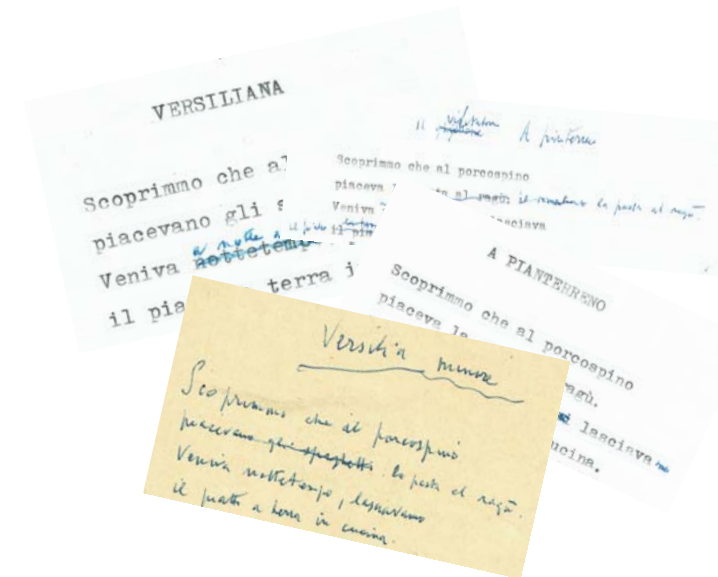 VERSILIANA
Scoprimmo che al
piacevano gli s
a notte a
Veniva nottetemp
il pia terra i
Il A pianterreno
Scoprimmo che al porcospino
piaceva la pasta al ragù. la pasta al ragù.
Veniva lasciava
il pia
A PIANTERRENO
Scoprimmo che al porcospino
piaceva la
ragù.
lasciavamo
ucina.
Versilia minore
Scoprimmo che al porcospino
piacevano gli spaghetti la pasta al ragù.
Veniva nottetempo, lasciavamo
il piatto a terra in cucina.